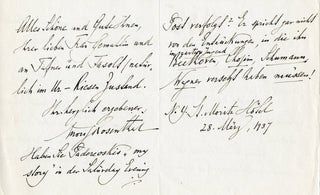 Alles Schöne und Gute Ihnen,
Ihrer lieben Frau Gemahlin und
an Tafner und Fasolt, natür-
lich im Ur-Riesen Zustand.
Herzlich ergebener,
Moriz Rosenthal
Haben Sie Paderewskis "my
story" in der Saturday Evening
Post verfolgt? Er spricht gar nicht
von den Entzückungen, in die ihn
Beethoven, Chopin, Schumann,
Wagner versetzt haben mussten!
N.Y. St. Moritz Hôtel
28. März, 1937